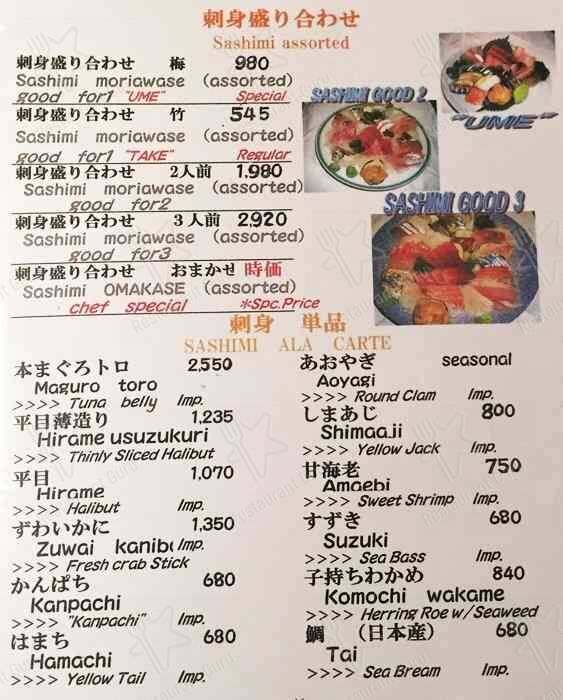 刺身盛り合わせ
Sashimi assorted
刺身盛り合わせ 梅 980
Sashimi moriawase (assorted)
good for1 "UME" Special
刺身盛り合わせ 竹 545
Sashimi moriawase (assorted)
good for1 "TAKE" Regular
刺身盛り合わせ 2人前 1,980
Sashimi moriawase (assorted)
good for2
刺身盛り合わせ 3人前 2,920
Sashimi moriawase (assorted)
good for3
刺身盛り合わせ おまかせ 時価
Sashimi OMAKASE (assorted)
chef special *Spc.Price
SASHIMI GOOD 2
"UME"
SASHIMI GOOD 3
刺身 単品
SASHIMI ALA CARTE
本まぐろトロ 2,550
Maguro toro
>>>> Tuna belly Imp.
平目薄造り 1,235
Hirame usuzukuri
>>>> Thinly Sliced Halibut
平目 1,070
Hirame
>>>> Halibut Imp.
ずわいかに 1,350
Zuwai kanibo Imp.
>>>> Fresh crab Stick
かんぱち 680
Kanpachi
>>>> "Kanpachi" Imp.
はまち 680
Hamachi
>>>> Yellow Tail Imp.
あおやぎ seasonal
Aoyagi
>>>> Round Clam Imp.
しまあじ 800
Shimaaji
>>>> Yellow Jack Imp.
甘海老 750
Amaebi
>>>> Sweet Shrimp Imp.
すずき 680
Suzuki
>>>> Sea Bass Imp.
子持ちわかめ 840
Komochi wakame
>>>> Herring Roe w/Seaweed
鯛 (日本産) 680
Tai
>>>> Sea Bream Imp.